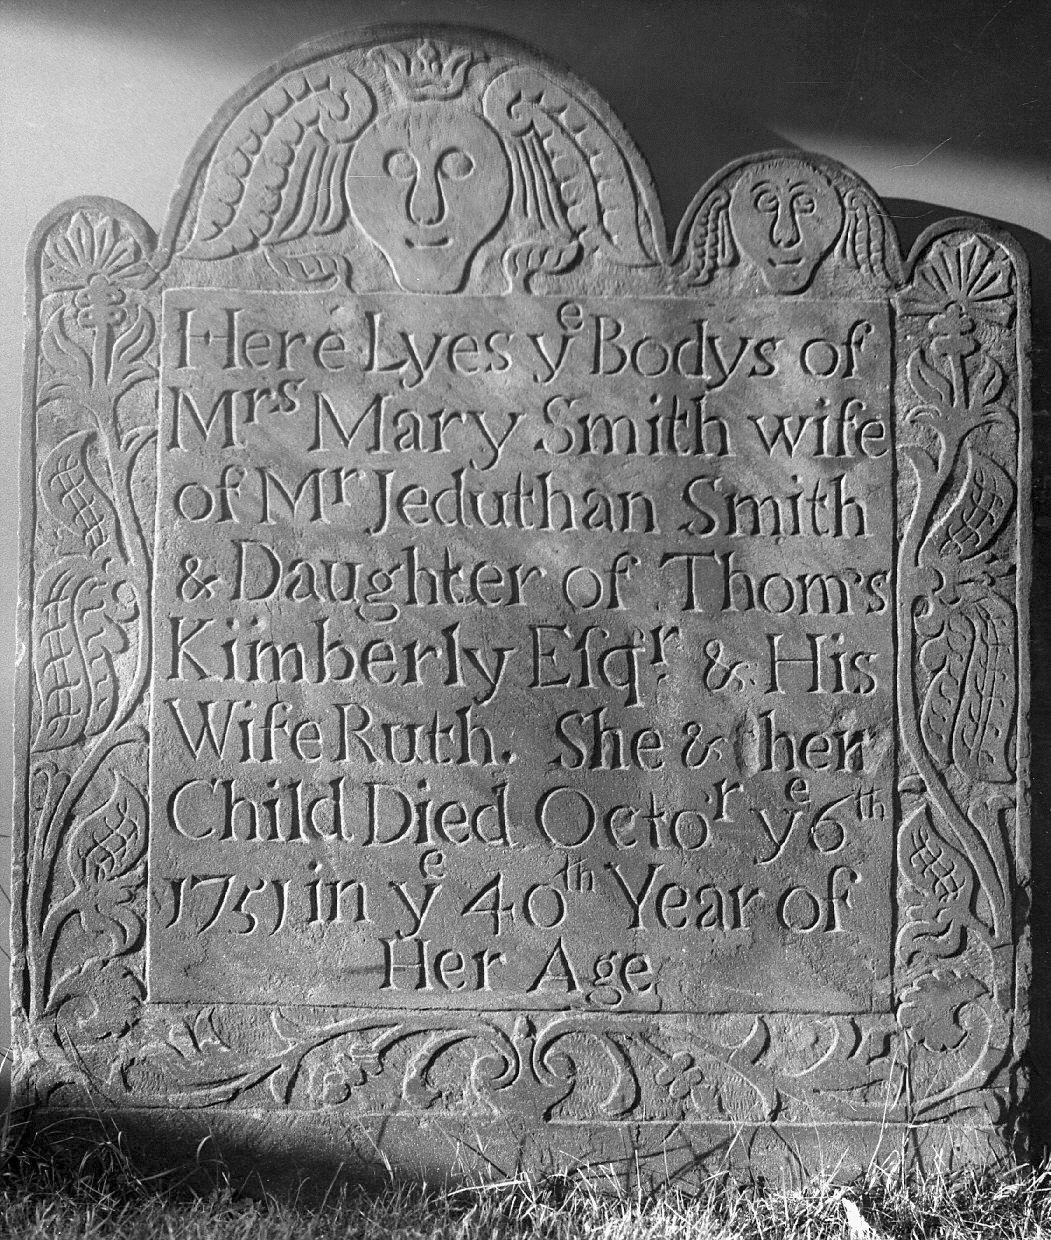 Here Lyes yᵉ Bodys of
Mʳˢ Mary Smith wife
of Mʳ Jeduthan Smith
& Daughter of Thomˢ
Kimberly Eſqʳ. & His
Wife Ruth. She & her
Child Died Octoʳ yᵉ 6ᵗʰ
1751 in yᵉ 40ᵗʰ Year of
Her Age